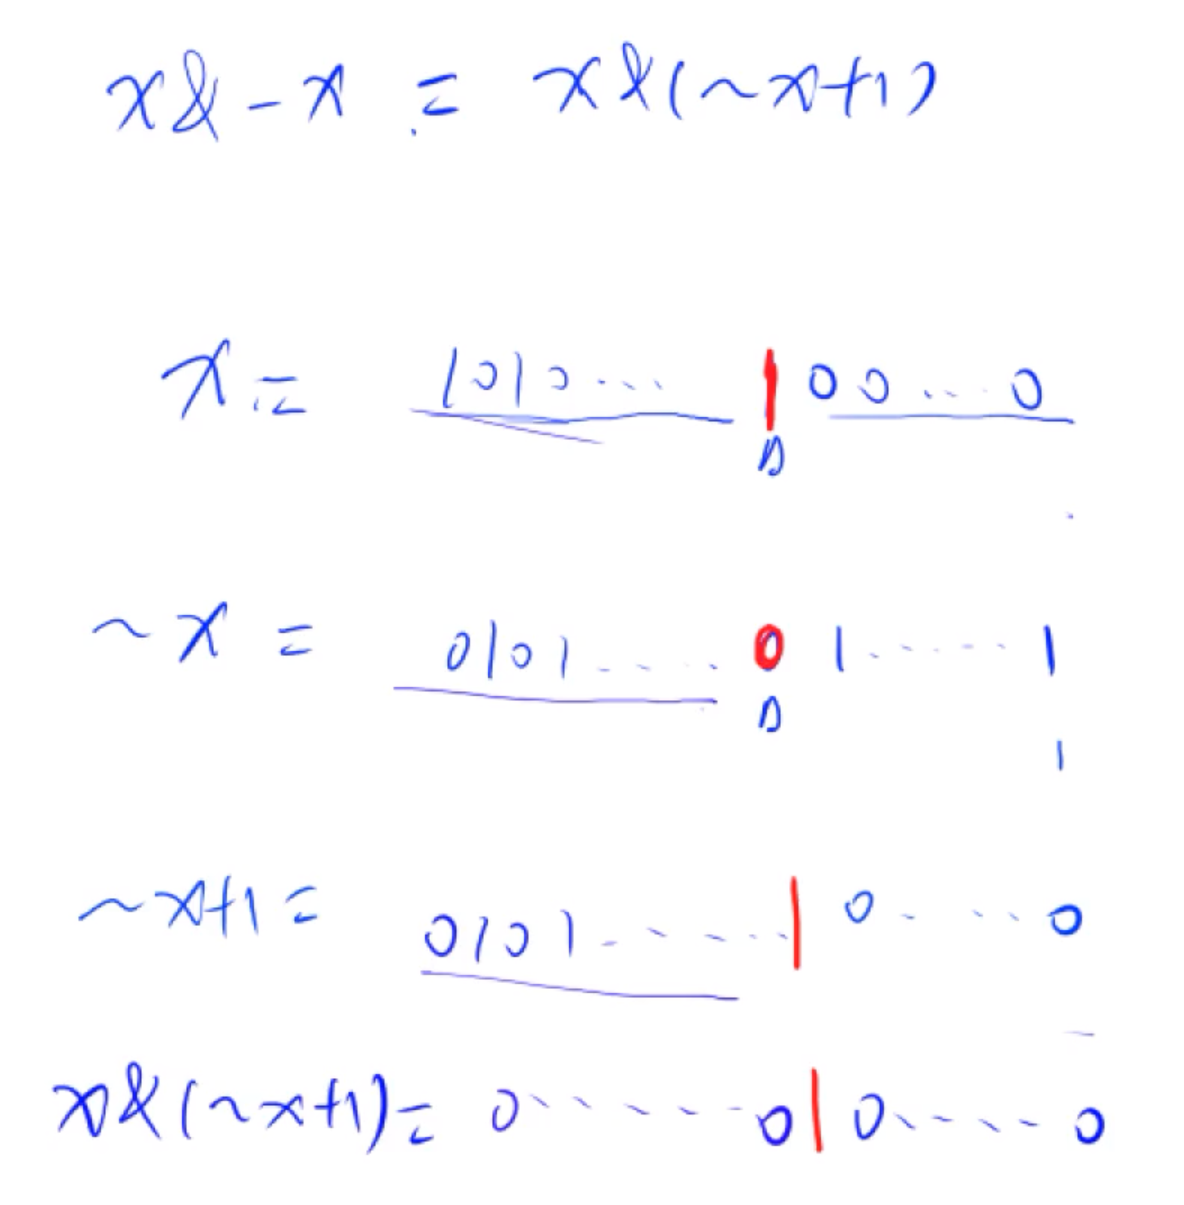 x&-x = x&(~x+1)
x= 1010... 1 00...0
~x = 0101..... 0 1......1
1
~x+1= 0101......1 0....0
x&(~x+1)= 0......0 1 0.....0